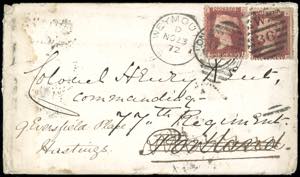 WEYMOUTH
D
NO 23
72
Colonel Henry Kent,
commanding
77th Regiment
9 Eversfield Place
Portland
Hastings.